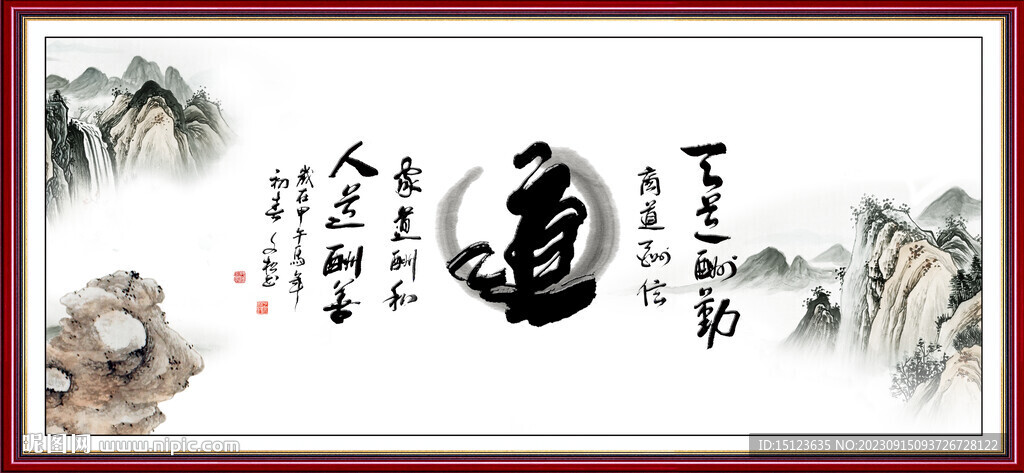 天道酬勤
商道酬信
道
家道酬和
人道酬善
岁在甲午马年
初春
昵图网 www.nipic.com
ID:15123635 NO:20230915093726728122